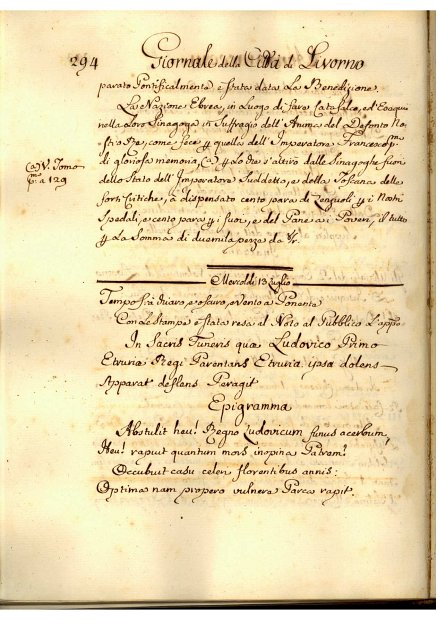 294 Giornale della Città di Livorno
parato Pontificalmente è stata data La Benedizione.
La Nazione Ebrea, in Luogo di fare Catafalco, ed Esequie
nella Loro Sinagoga in Suffragio dell'Anima del Defonto No
stro Re, come fece p quella dell'Imperatore Francesco pmo
di gloriosa memoria, (a) p Lo che s'attirò dalle Sinagoghe fuori
(a) V. Tomo
pmo a 129
dello Stato dell'Imperatore Suddetto, e della Toscana delle
forti Critiche, à dispensato cento para di Lenzuoli p i Nostri
Spedali, e cento para p i fuori, e del Pane a i Poveri, il tutto
p La Somma di duemila pezza da 8/r.
Mercoldì 13 Luglio
Tempo frà chiaro, e oscuro, e vento a Ponente
Con Le Stampe è stata resa al Noto al Pubblico L'appo
In Sacris Funeris quæ Ludovico Primo
Etruriæ Regi Parentans Etruria ipsa dolens
Apparat deflens Peragit
Epigramma
Abstulit heu! Regno Ludovicum funus acerbum,
Heu! rapuit quantum mors inopina Patrem!
Occubuit casu celeri florentibus annis:
Optima nam propero vulnere Parca rapit.